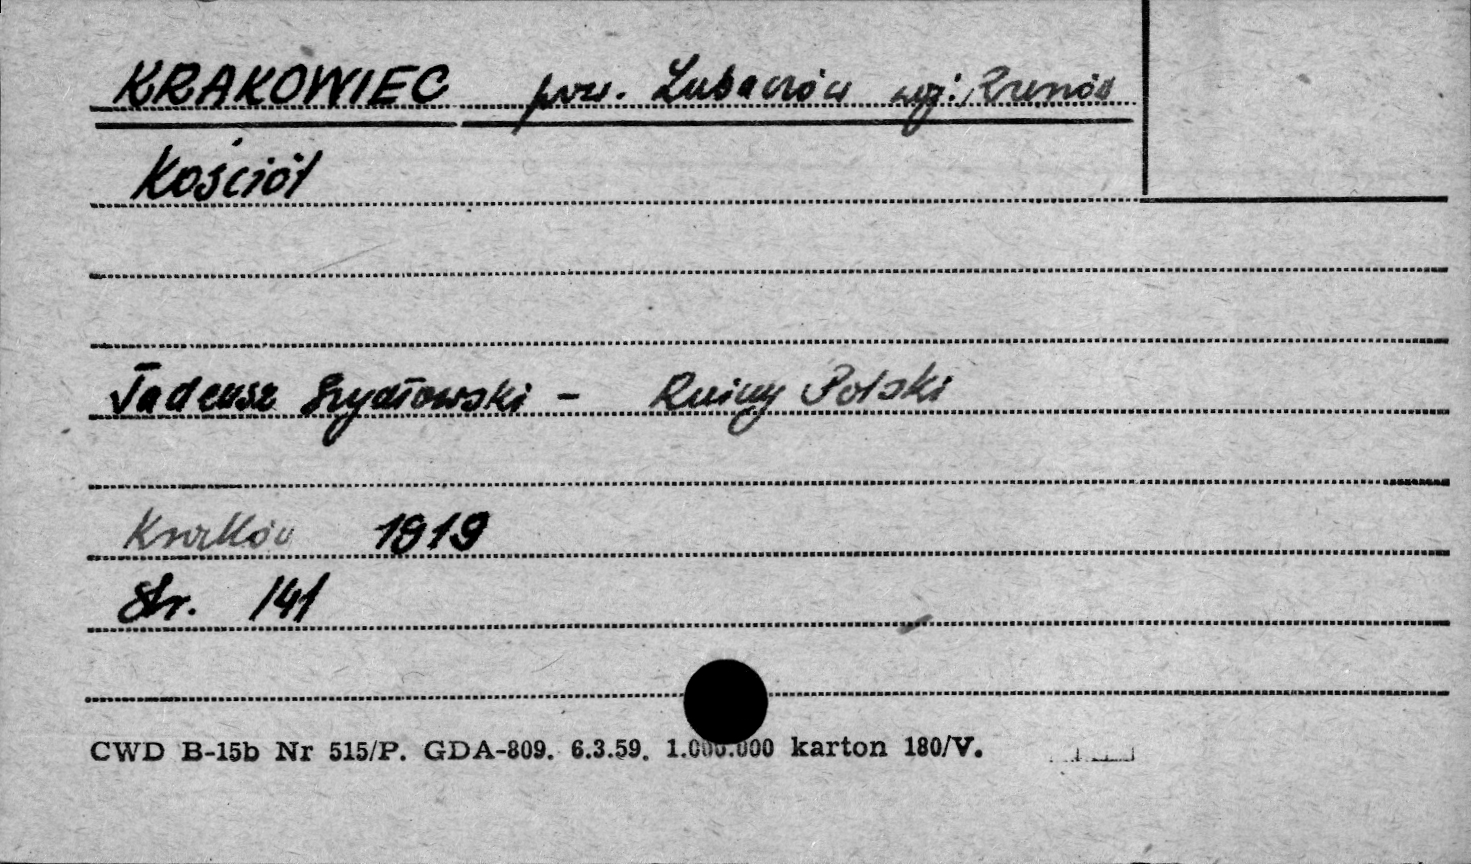 KRAKOWIEC pow. Lubaczów woj. Rzeszów
Kościół
Tadeusz Szydłowski - Ruiny Polski
Kraków 1919
Str. 141
CWD B-15b Nr 515/P. GDA-809. 6.3.59. 1.000.000 karton 180/V.